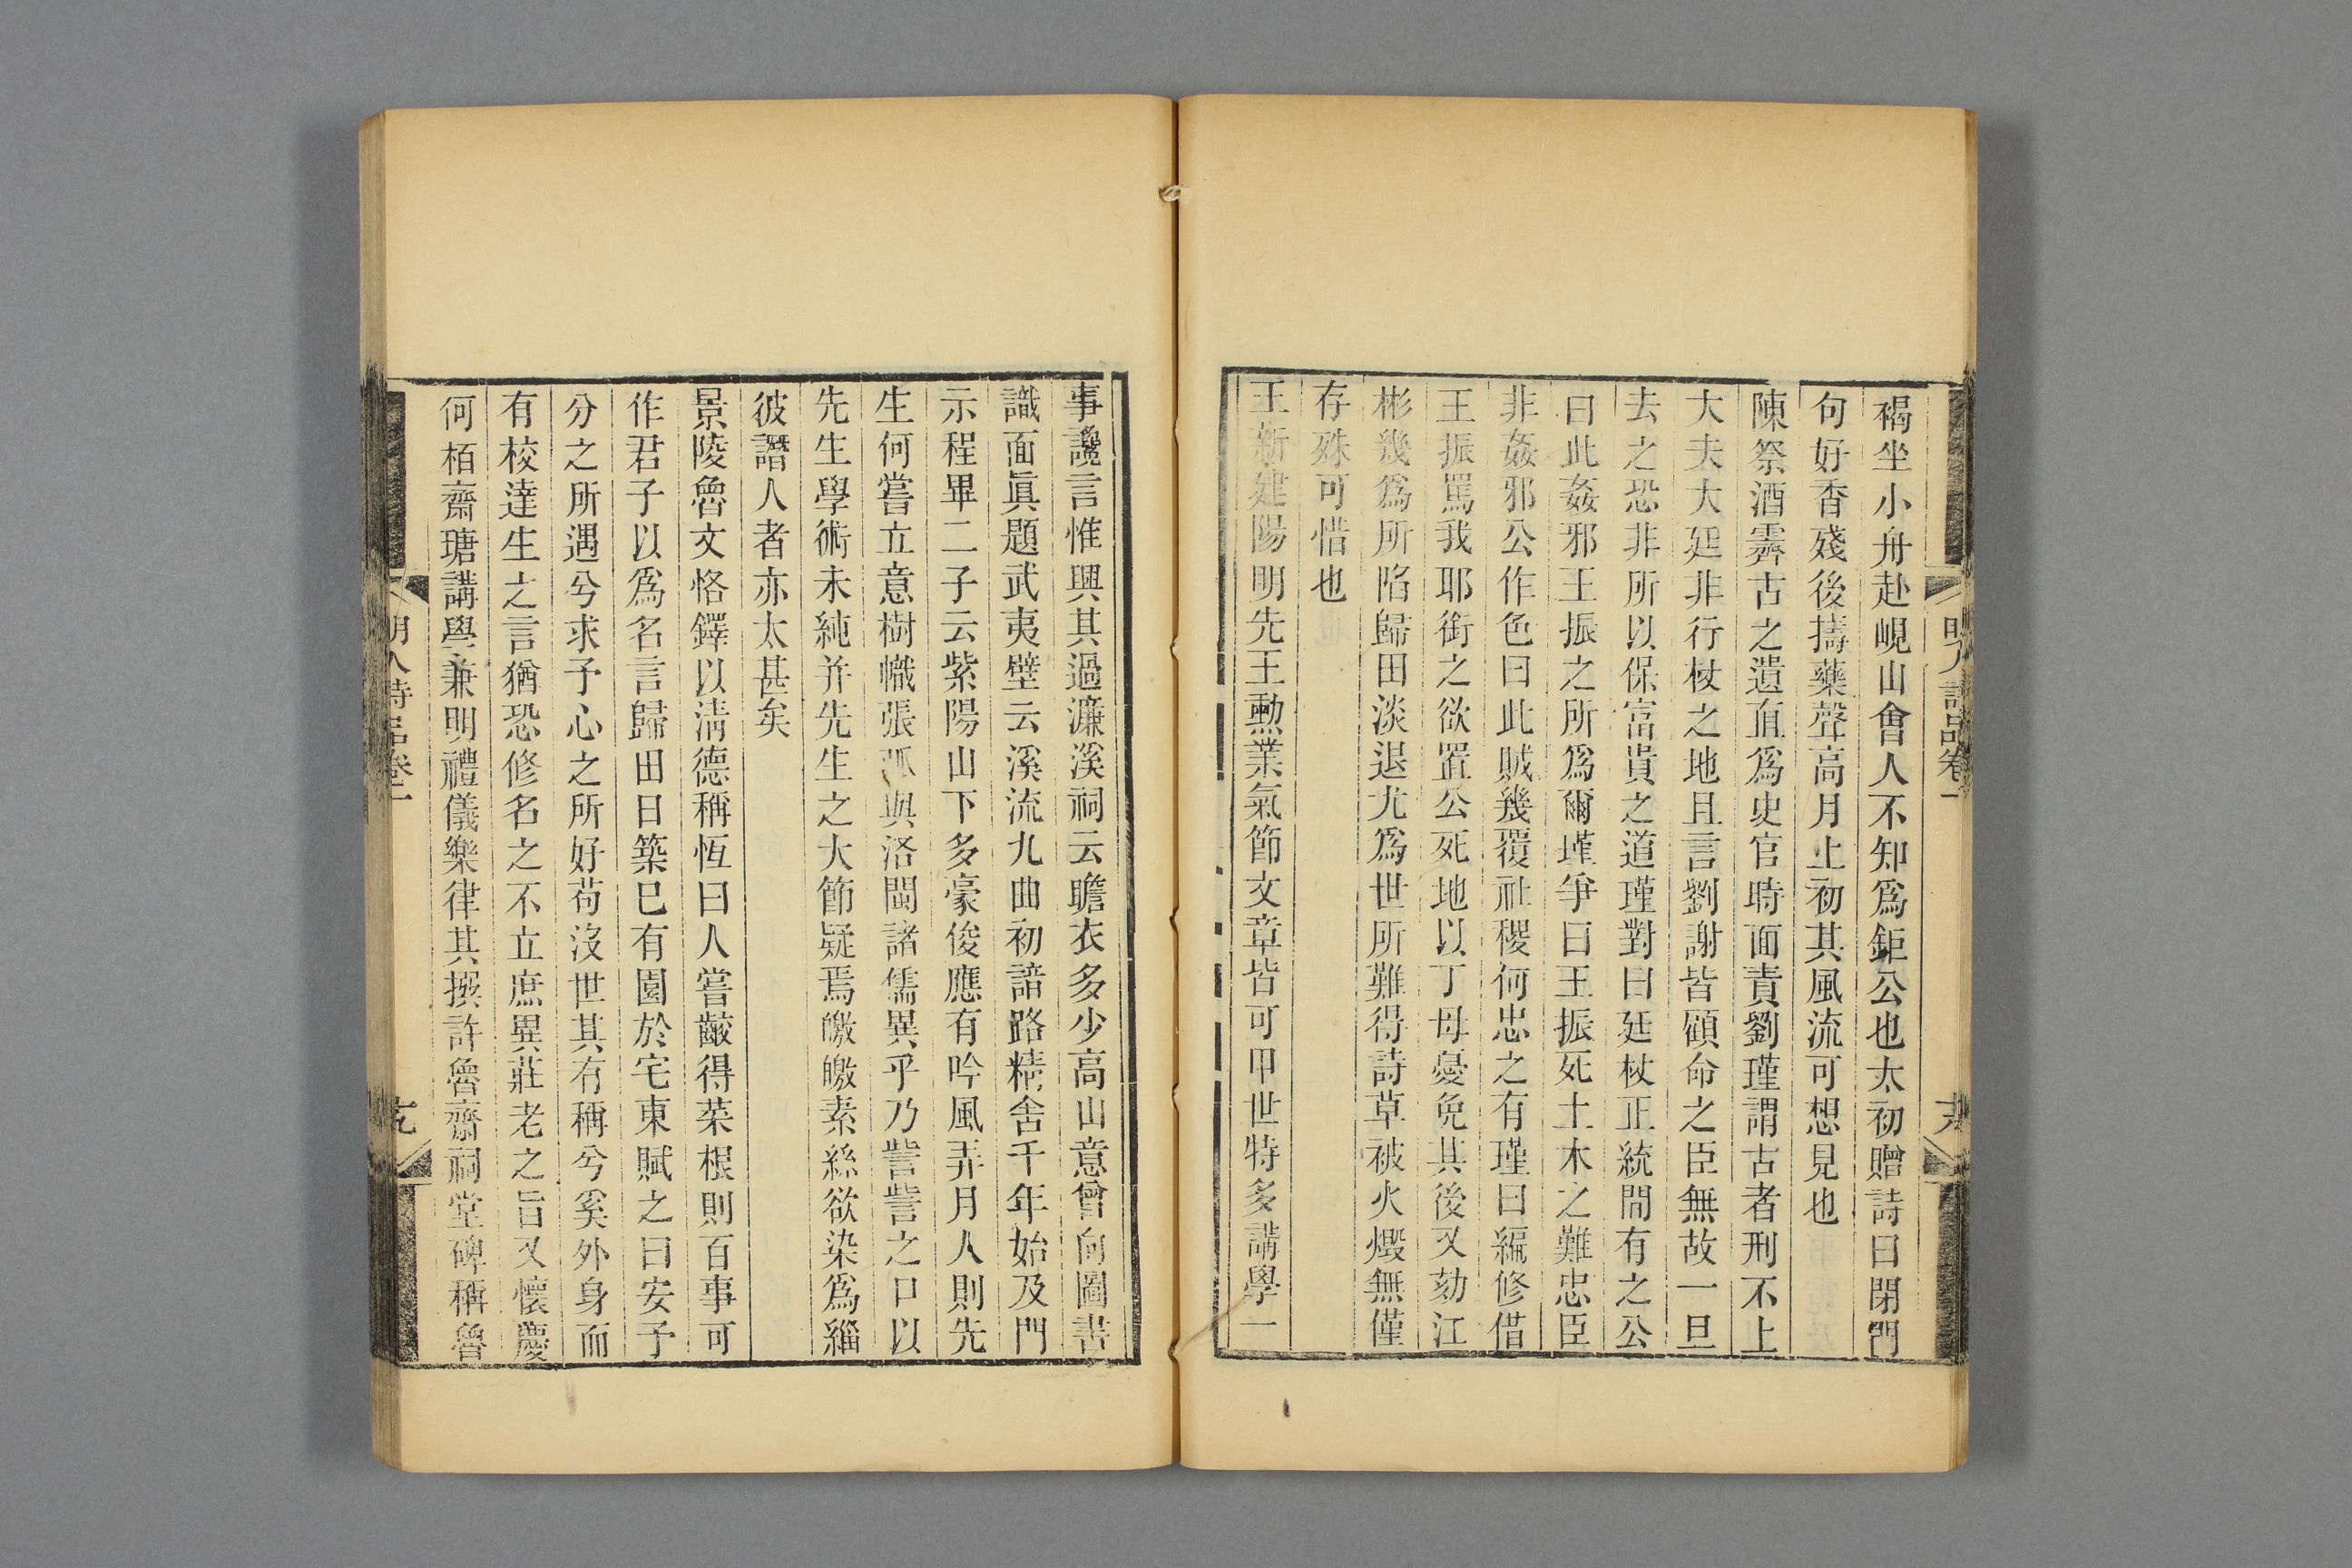 明人詩品卷一
褐坐小舟赴峴山會人不知爲鉅公也太初贈詩曰閉門
句好香殘後擣藥聲高月上初其風流可想見也
陳祭酒霽古之遺直爲史官時面責劉瑾謂古者刑不上
大夫大廷非行杖之地且言劉謝皆顧命之臣無故一旦
去之恐非所以保富貴之道瑾對曰廷杖正統間有之公
曰此姦邪王振之所爲爾瑾爭曰王振死土木之難忠臣
非姦邪公作色曰此賊幾覆社稷何忠之有瑾曰編修借
王振罵我耶銜之欲置公死地以丁母憂免其後又劾江
彬幾爲所陷歸田淡退尤爲世所難得詩草被火燬無僅
存殊可惜也
王新建陽明先王勳業氣節文章皆可甲世特多講學一
事讒言惟興其過濂溪祠云瞻衣多少高山意曾向圖書
識面眞題武夷壁云溪流九曲初諳路精舍千年始及門
示程畢二子云紫陽山下多豪俊應有吟風弄月人則先
生何嘗立意樹幟張弧與洛閩諸儒異乎乃訾訾之口以
先生學術未純并先生之大節疑焉皦皦素絲欲染爲緇
彼譖人者亦太甚矣
景陵魯文恪鐸以淸德稱恆曰人嘗齩得菜根則百事可
作君子以爲名言歸田日築巳有園於宅東賦之曰安予
分之所遇兮求予心之所好苟沒世其有稱兮奚外身而
有校達生之言猶恐修名之不立庶異莊老之旨又懷慶
何栢齋瑭講學兼明禮儀樂律其撰許魯齋祠堂碑稱魯
明人詩品卷一